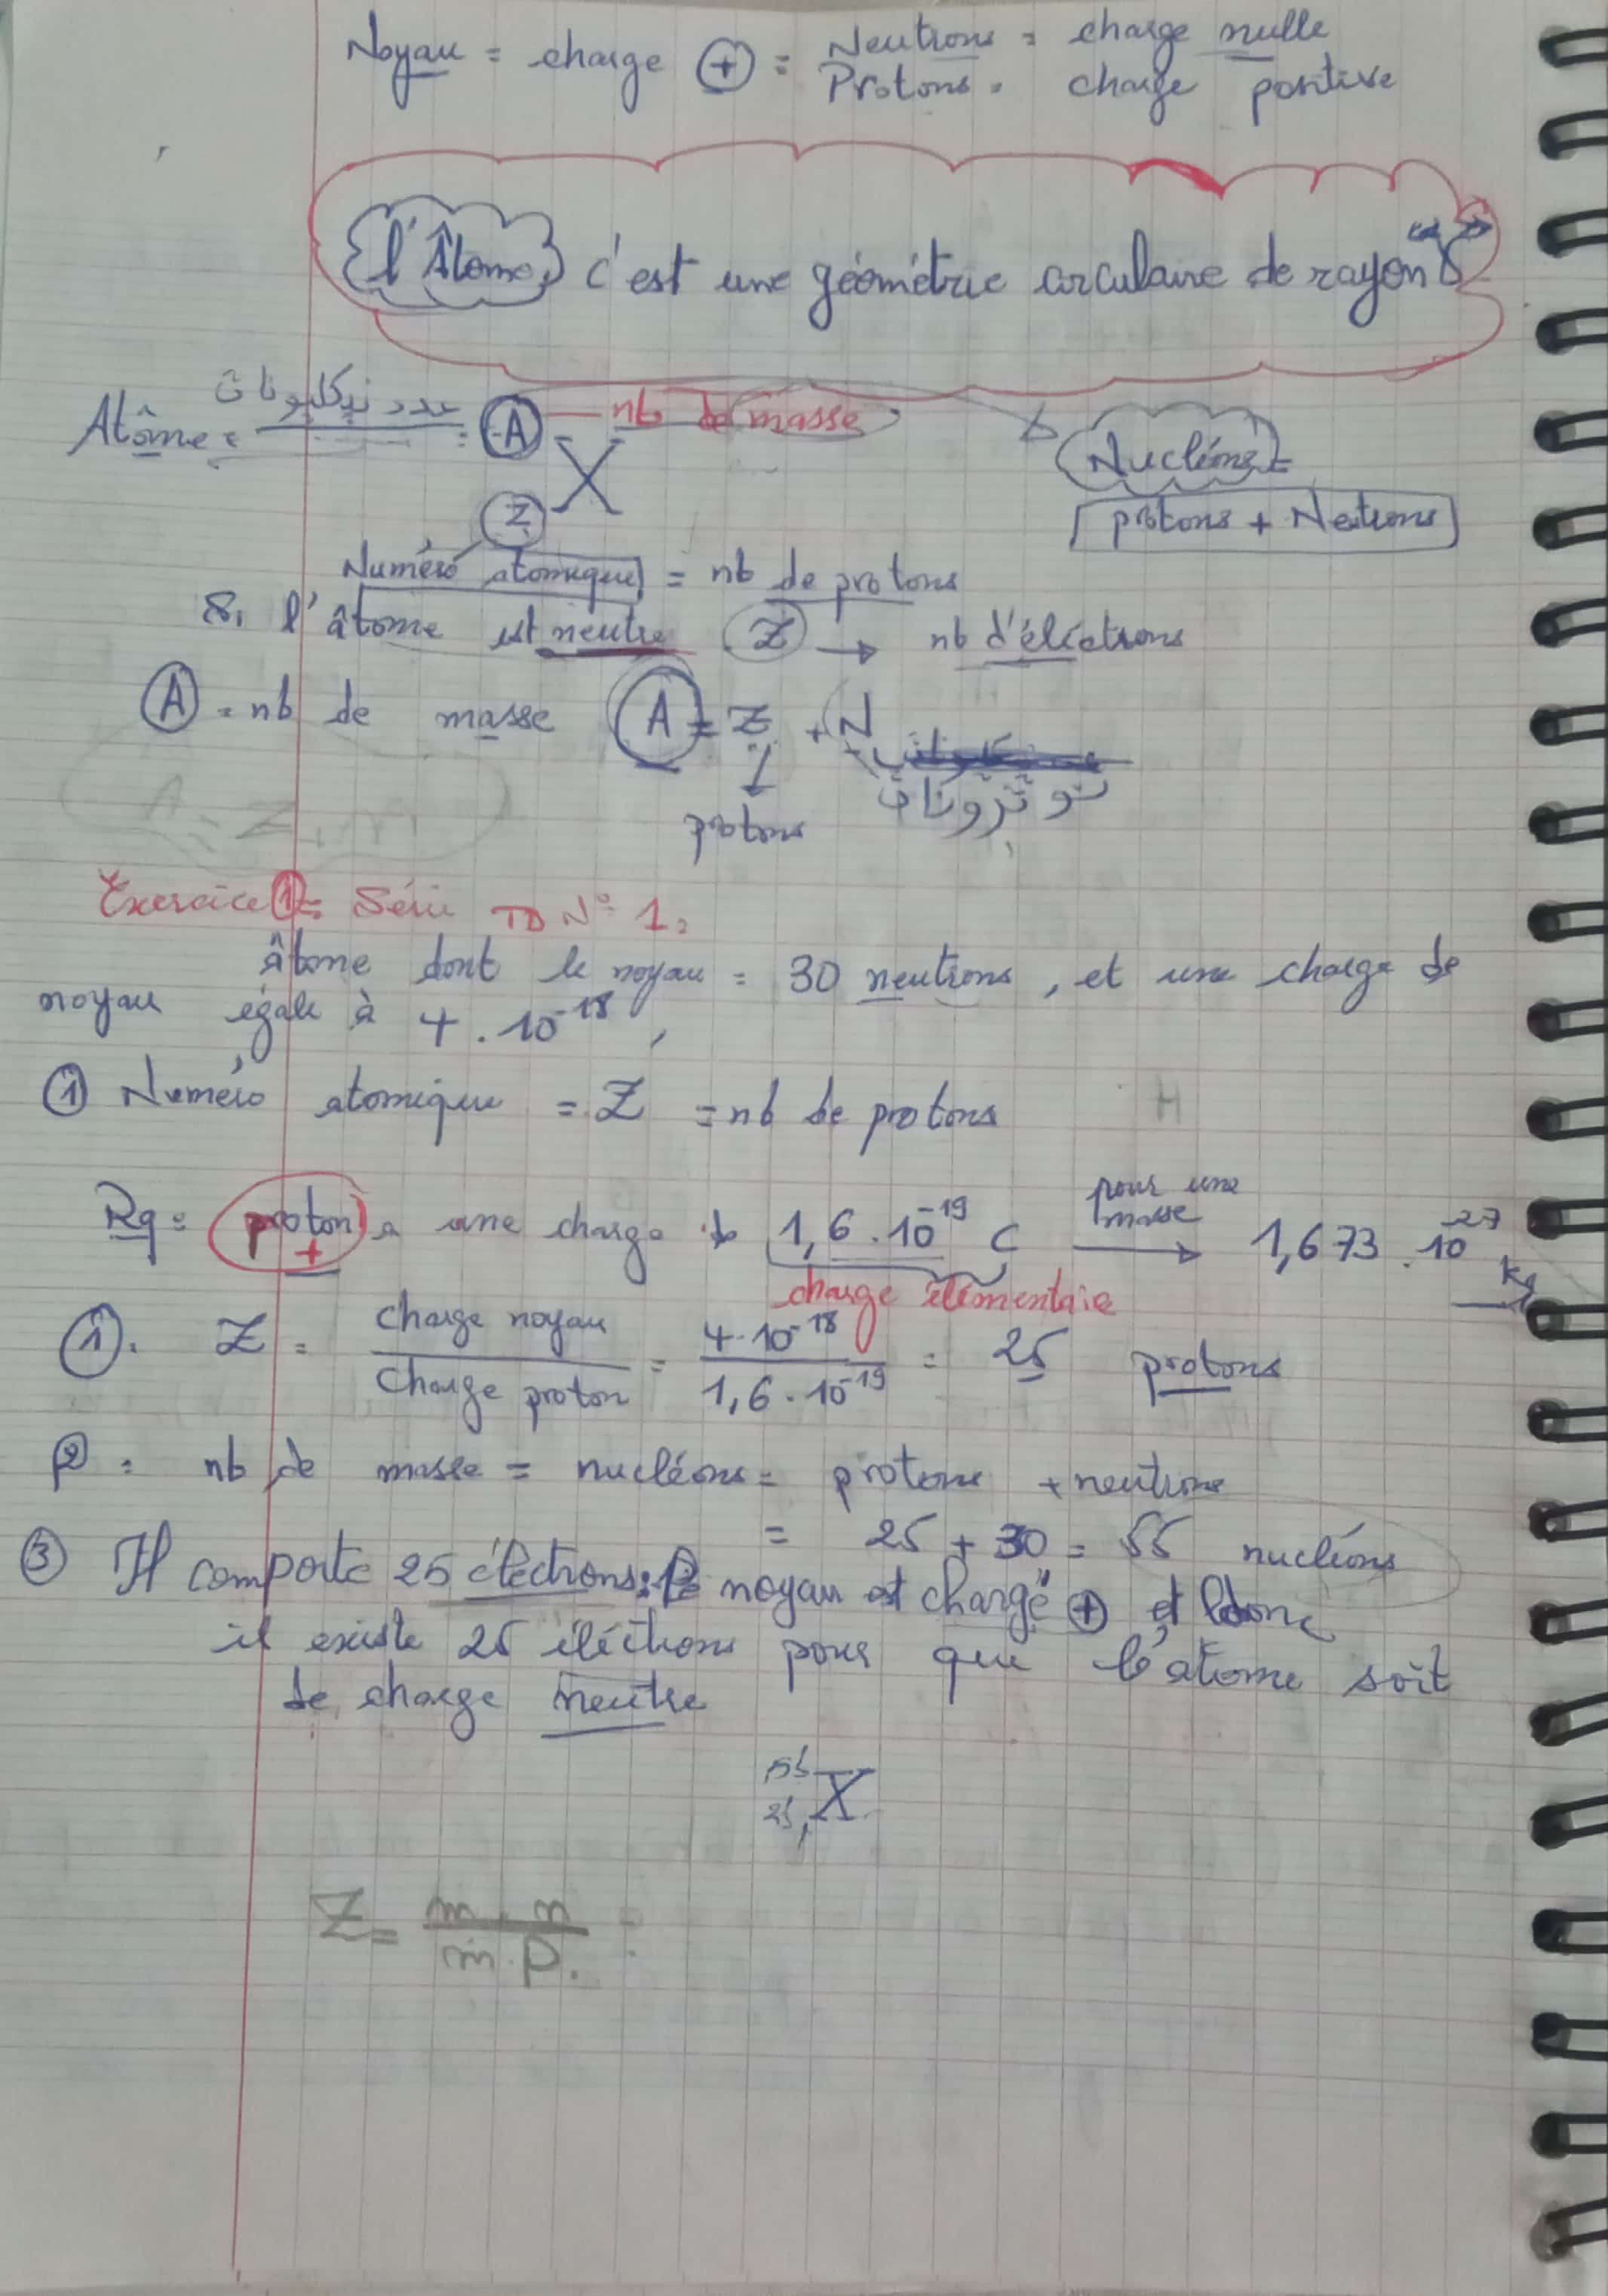 Noyau = charge ⊕ = Neutrons = charge nulle
Protons = charge positive
l'Âtome, c'est une géométrie circulaire de rayon
Atôme = عدد نيكليونات = A — nb de masse
X
Z
Nucléons =
protons + Neutrons
Numéro atomique = nb de protons
Si l'âtome est neutre Z → nb d'éléctrons
A = nb de masse A = Z + N
نوترونات
protons
Exercice 1 = Série TD N° 1 :
âtome dont le noyau = 30 neutrons, et une charge de
noyau égale à 4 . 10⁻¹⁸,
① Numéro atomique = Z = nb de protons
H
Rq = proton a une charge 1,6 . 10⁻¹⁹ C pour une masse → 1,673 . 10⁻²⁷ kg
+
charge élémentaire
①. Z = charge noyau / charge proton = 4 . 10⁻¹⁸ / 1,6 . 10⁻¹⁹ = 25 protons
② = nb de masse = nucléons = protons + neutrons
= 25 + 30 = 55 nucléons
③ Il comporte 25 éléctrons : le noyau est chargé ⊕ et donc
il existe 25 éléctrons pour que l'atome soit
de charge neutre
55
25 X
Z = m . n / m . p. =